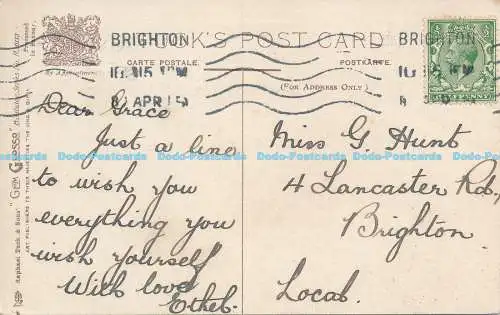 TUCK'S POST CARD
CARTE POSTALE.
POSTKARTE.
(FOR ADDRESS ONLY)
By Appointment
BRIGHTON
BRIGHTON
8 APR 15
Raphael Tuck & Sons' "Gem Glosso"
Dear Grace
Just a line
to wish you
everything you
wish yourself
With love
Ethel.
Miss G. Hunt
4 Lancaster Rd,
Brighton
Local.
Dodo-Postcards Dodo-Postcards Dodo-Postcards Dodo-Postcards Dodo-Postcards